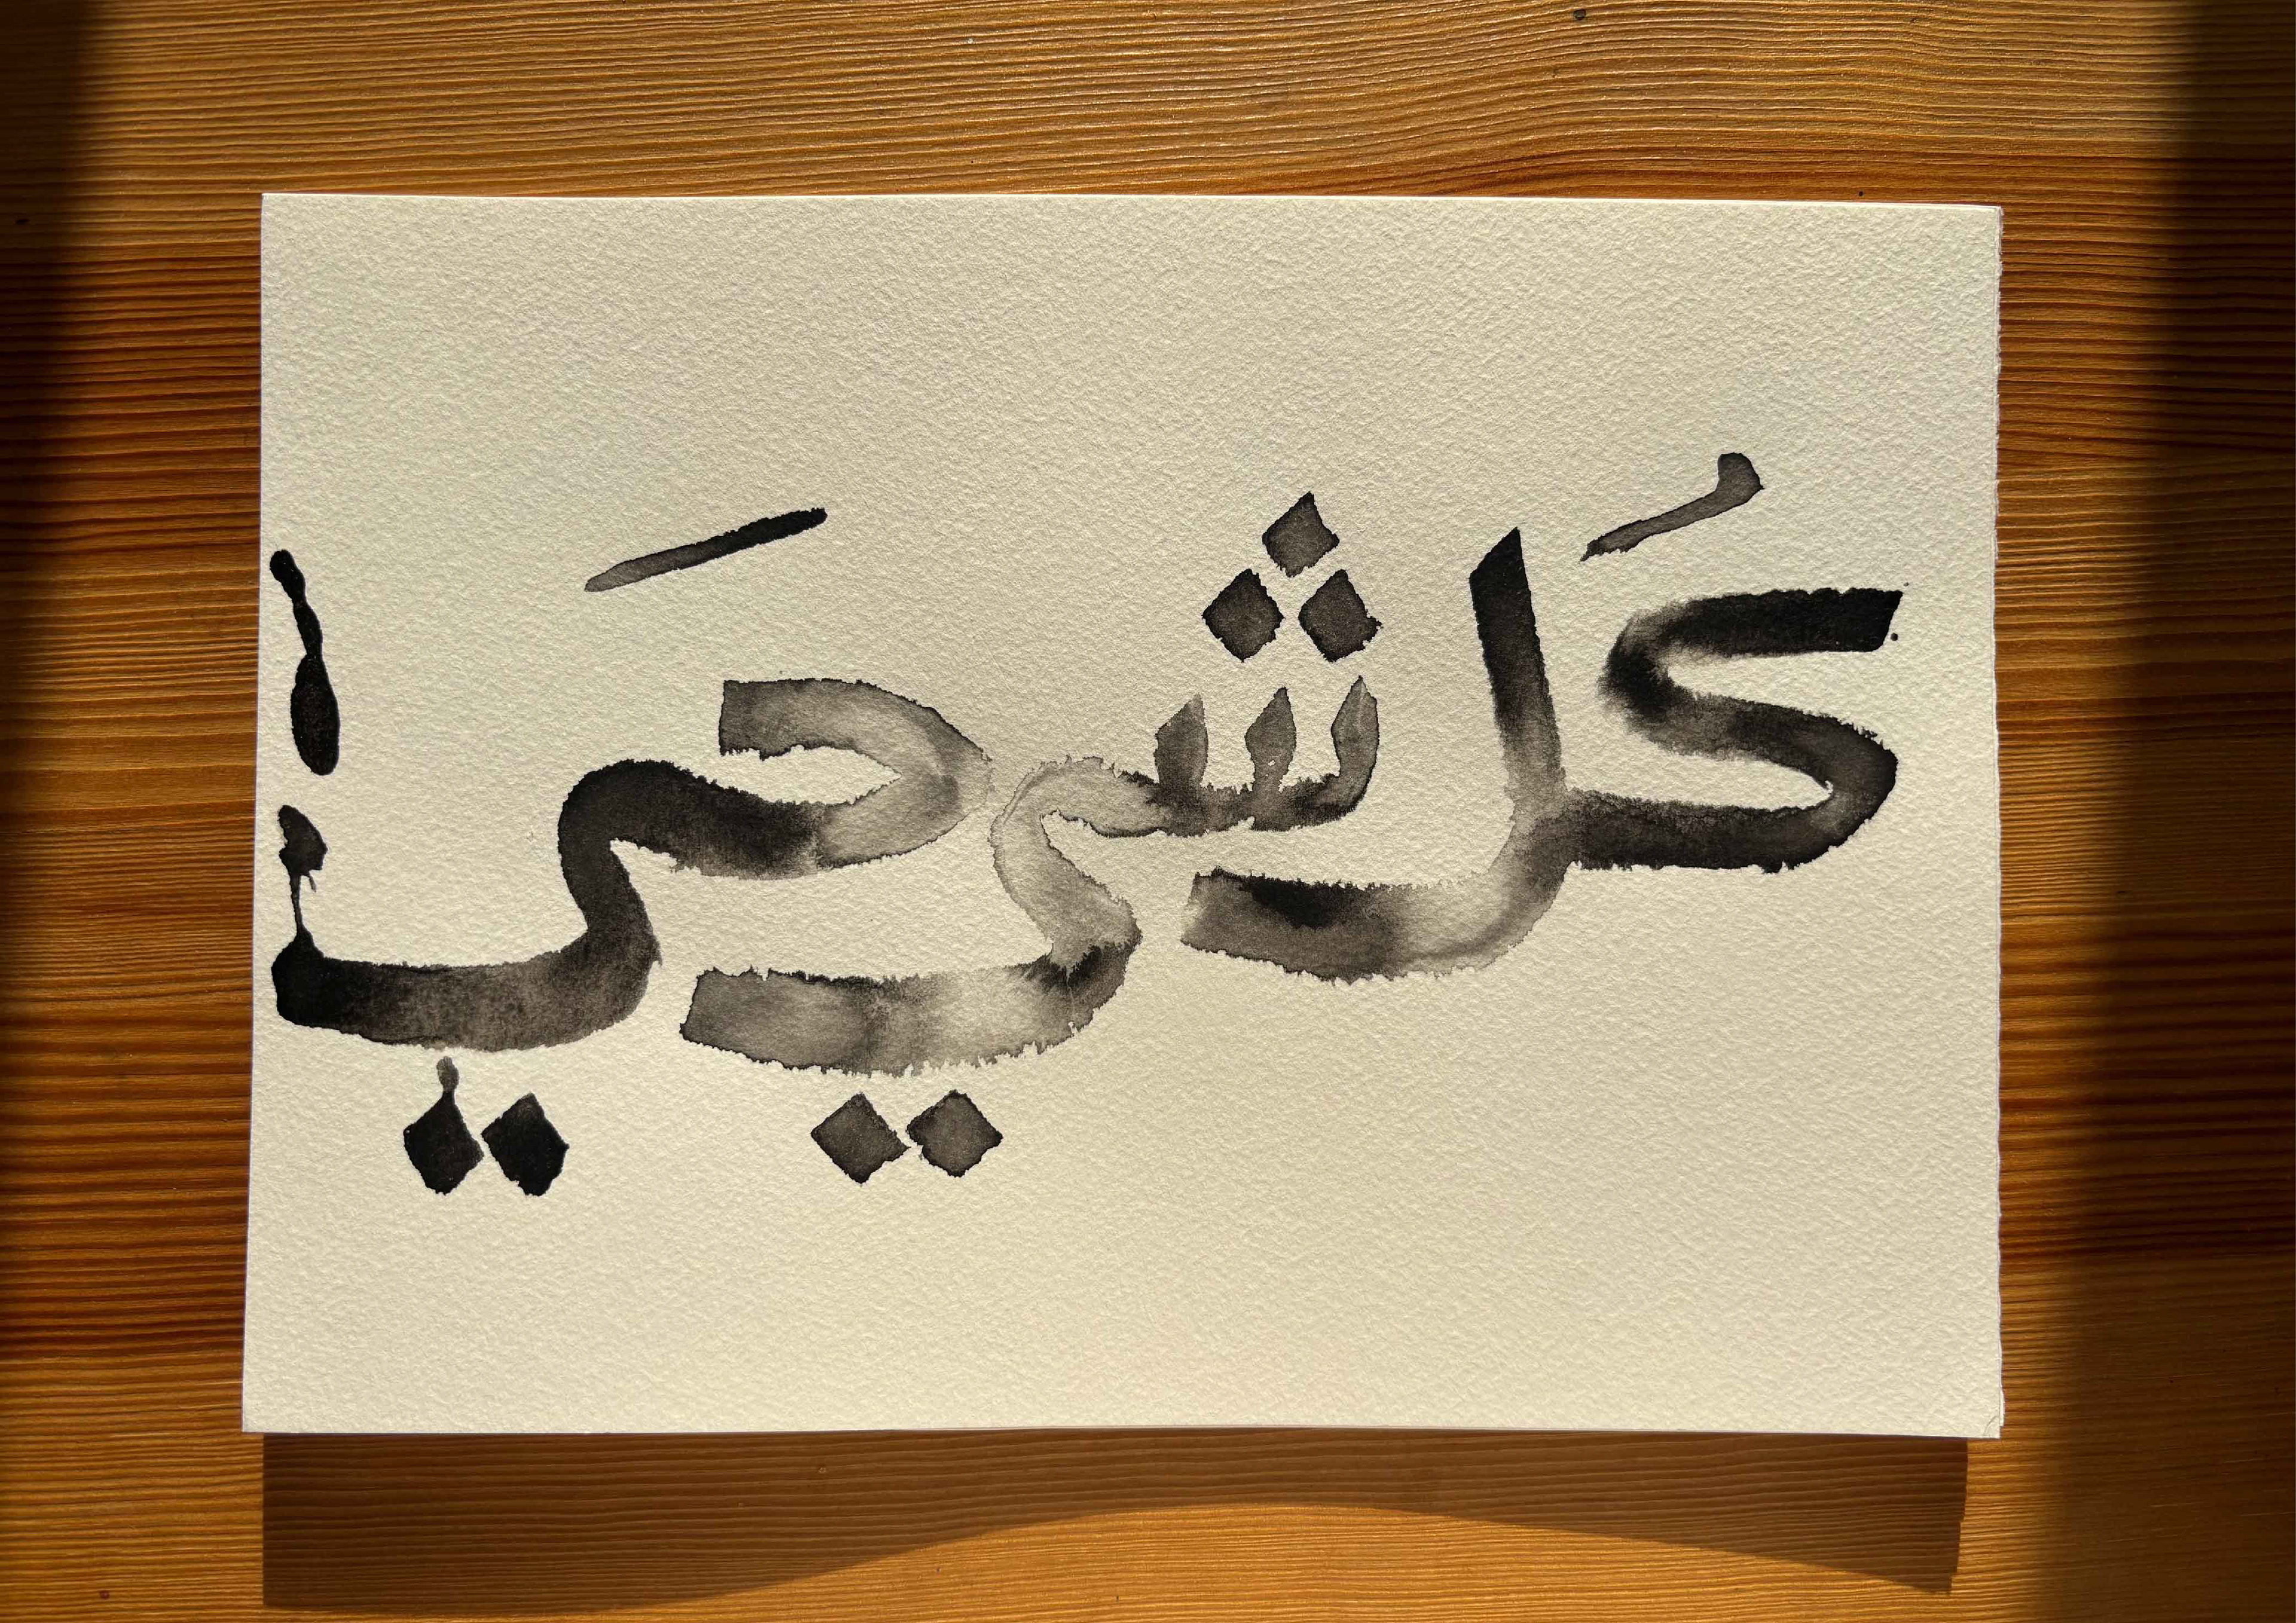 كُل شي حَي